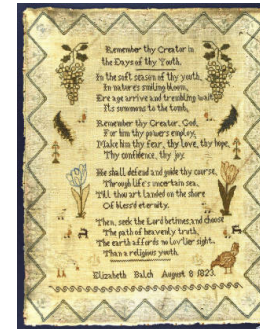 Remember thy Creator in
the Days of thy Youth.
In the soft season of thy youth,
In nature's smiling bloom,
Ere age arrive and trembling wait
Its summons to the tomb,
Remember thy Creator, God,
For him thy powers employ,
Make him thy fear, thy love, thy hope,
Thy confidence, thy joy.
He shall defend and guide thy course,
Through life's uncertain sea,
Till thou art landed on the shore
Of bless'd eternity.
Then, seek the Lord betimes, and choose
The path of heavenly truth,
The earth affords no lovlier sight,
Than a religious youth.
Elizabeth Balch August 8 1823.